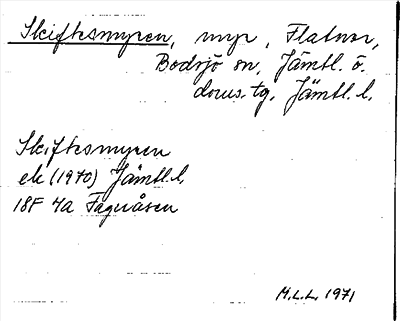 Skiftesmyren, myr, Flatnor,
Bodsjö sn, Jämtl. ö.
doms.tg, Jämtl. l.
Skiftesmyren
ek (1970) Jämtl. l.
18F 4a Fagnåsen
M.L.L. 1971